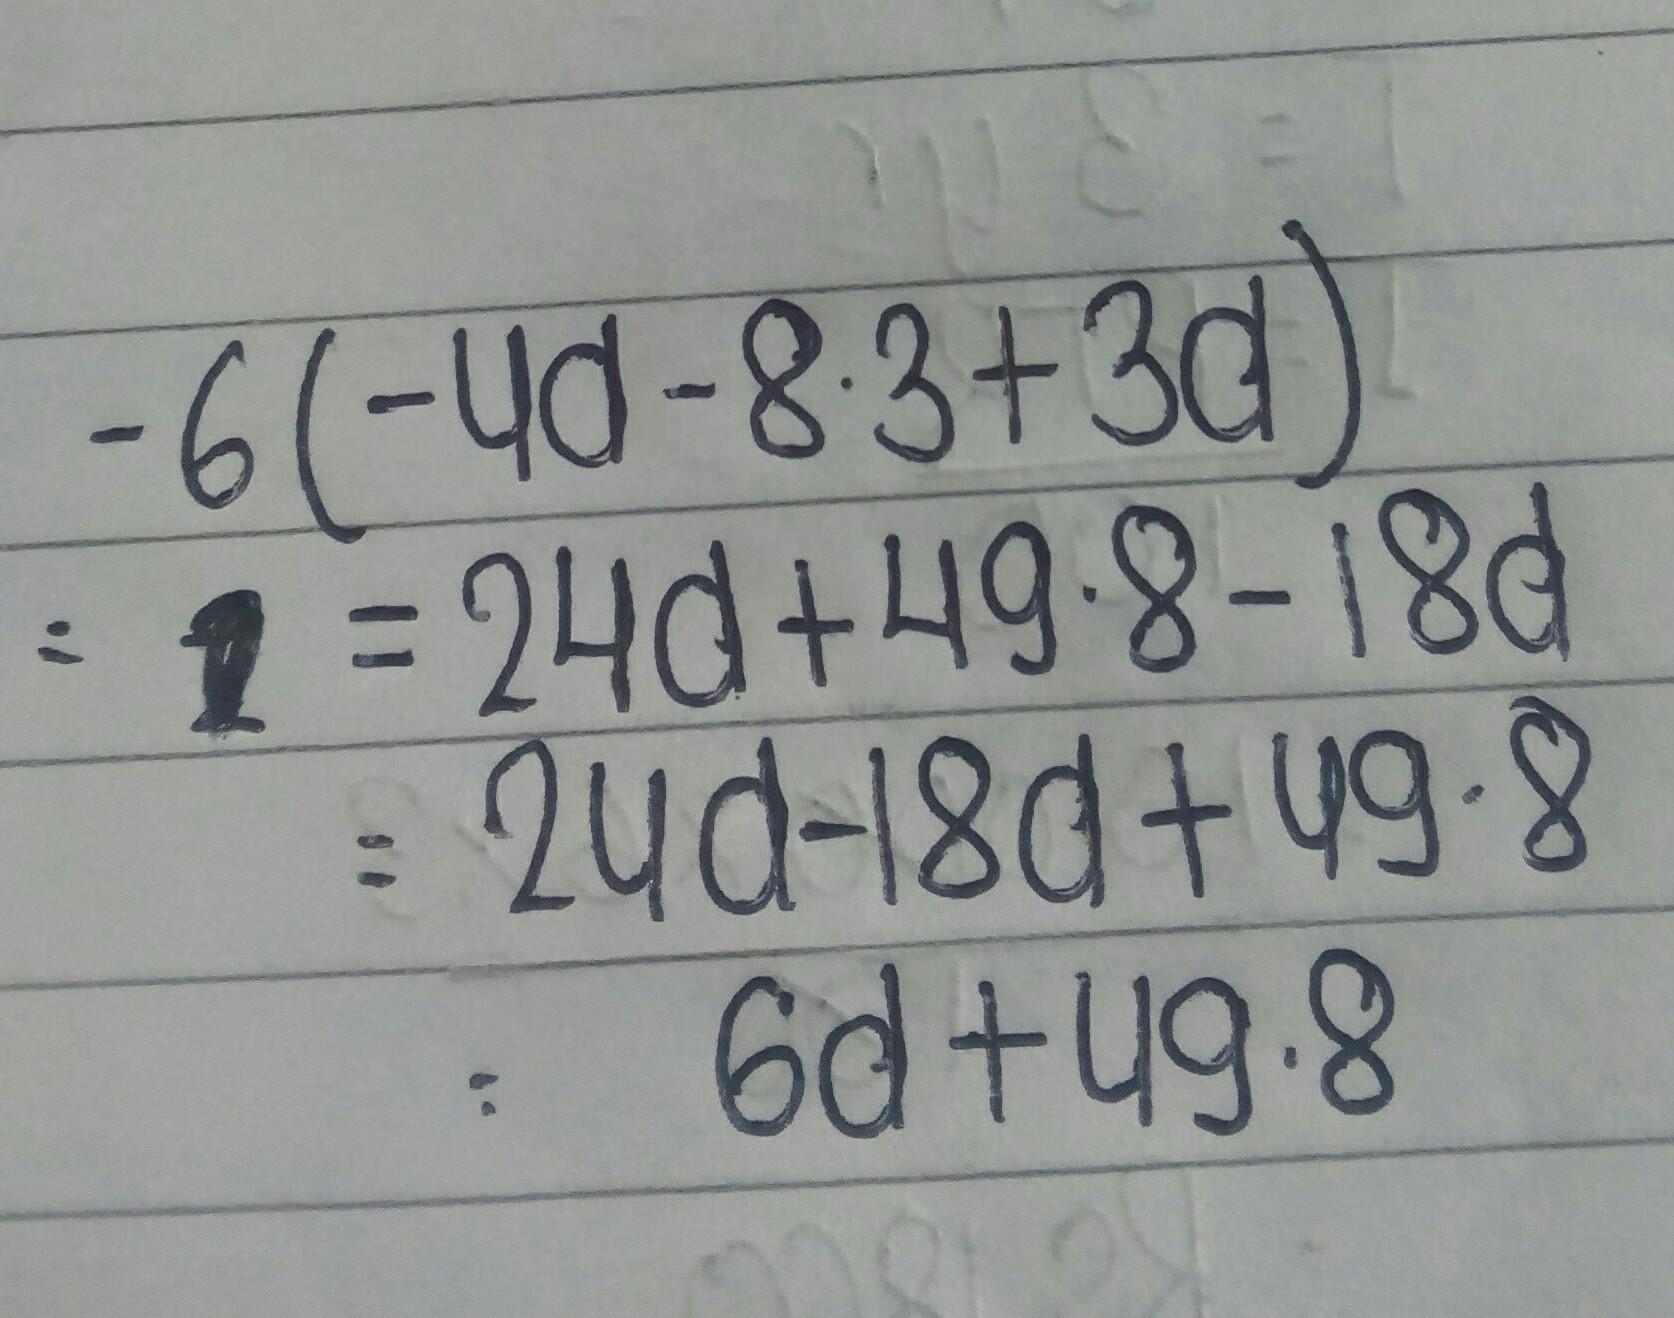 -6(-4d-8.3+3d)
= = 24d+49.8-18d
= 24d-18d+49.8
= 6d+49.8